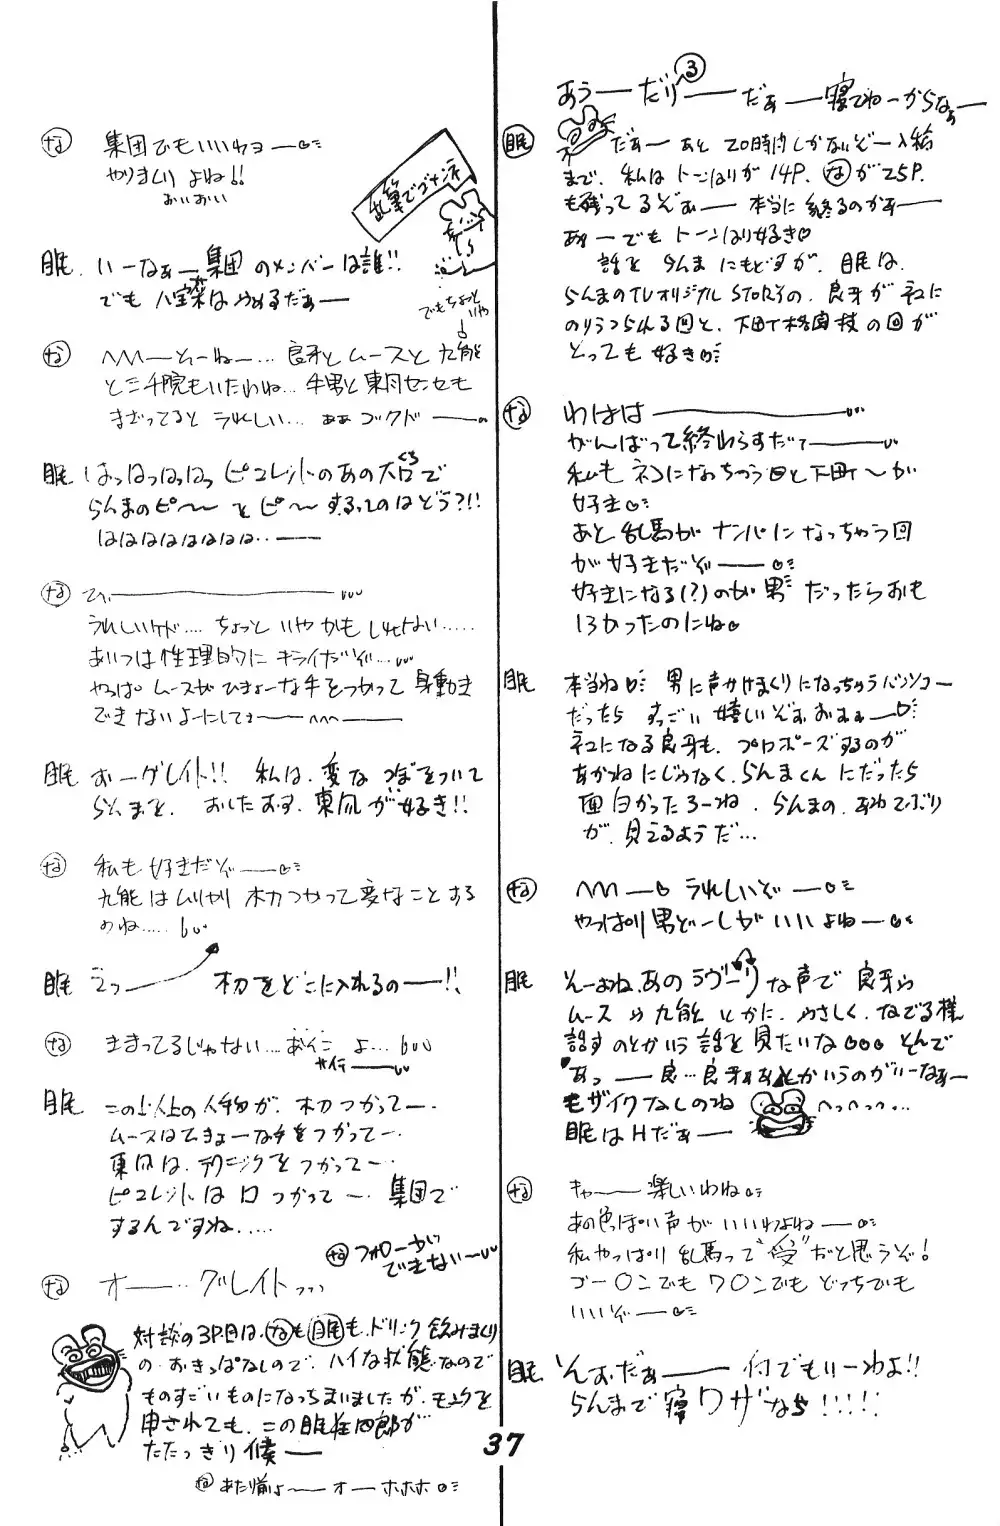 あぅーだりーだぁー寝てねーからなぁー
③
眠 だぁーあと20時間しかないぞー入稿
まで、私はトーンはりが14P、なが25P.
も残ってるぞぉー本当に終るのかぁー
あぁーでもトーンはり好き♡
話をらんまにもどすが、眠は、
らんまのTVオリジナルSTORYの、良牙がネコに
のりうつられる回と、下町格闘技の回が
とっても好き♡
な わははー
がんばって終わらすだてー
私もネコになっちゃう回と下町〜が
好き♡
あと乱馬がナンパになっちゃう回
が好きだぞー♡
好きになる(?)のが男だったらおも
しろかったのにね♡
眠 本当ね♡男に声かけまくりになっちゃうバンソコー
だったらすっごい嬉しいぞぉ
ネコになる良牙も、プロポーズするのが
あかねにじゃなく、らんまくんにだったら
面白かったろーね、らんまの、あわてぶり
が、見えるようだ…
な へへへー♡うれしいぞー♡
やっぱり男どーしがいいよねー♡
眠 そーよね、あのラヴーリな声で良牙や
ムースや九能とかに、やさしく、なでる様
話すのとかいう話を見たいな○○○そんで
"あっー良…良牙ぁ"とかいうのがいーなぁー
モザイクなしのね へっへっへ…
眠はHだぁー
な キャー楽しいわね♡
あの色っぽい声がいいわよねー♡
私やっぱり乱馬って"受"だと思うぞ!
ゴー○ンでもワ○ンでもどっちでも
いいぞー♡
眠 そんぉ、だぁー何でもいーわよ!!
らんまで寝ワザなら!!!!!
な 集団でもいいわヨー♡
やりまくりよね!!
おいおい
乱筆でゴメンネ
眠 いーなぁー集団のメンバーは誰!!
でも八宝菜はやめるだぁー
でもちょっといや
な へへへーそーねー…良牙とムースと九能
と三千院もいたわね…牛男と東風センセも
まざってるとうれしい…ぁぁゴックドー
眠 はっはっはっはっピコレットのあの大口で
らんまのピ〜〜とピ〜〜するってのはどう?!!
はははははははは…ー
な ひぃー
うれしいケド….ちょっといやかもしれない…..
あいつは性理的にキライだぞ…
やっぱムースがひきょーな手をつかって身動き
できないよーにしてぇー〜〜ー
眠 おーグレイト!! 私は、変なつぼをついて
らんまを、おしたおす、東風が好き!!
な 私も好きだぞー♡
九能はムリヤリ木刀つかって変なことする
のね…..
眠 えっー 木刀をどこに入れるのー!!
な きまってるじゃない…あそこよ…
眠 この上の人物が、木刀つかってー.
ムースはひきょーな手をつかってー.
東風は、テクニックをつかってー.
ピコレットは口つかってー. 集団で
するんですね…..
な フォローが
できないー
な オー…グレイト...
対談の3P目は、なも眠も、ドリンク飲みまくり
の、おきっぱなしので、ハイな状態なので
ものすごいものになっちまいましたが、モンクを
申されても、この眠狂四郎が
たたっきり候ー
な あたり前よーオーホホホ♡
37